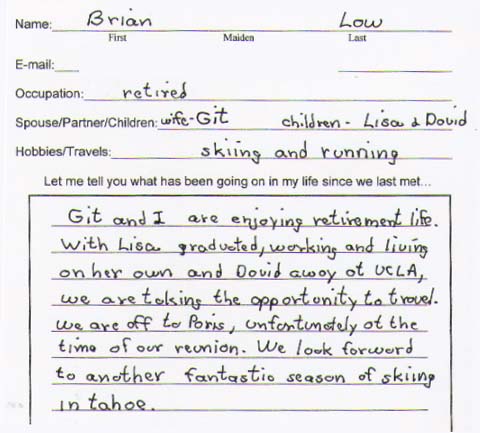 Name: Brian Low
First Maiden Last
E-mail:
Occupation: retired
Spouse/Partner/Children: wife-Git children - Lisa & David
Hobbies/Travels: skiing and running
Let me tell you what has been going on in my life since we last met...
Git and I are enjoying retirement life.
With Lisa graduated, working and living
on her own and David away at UCLA,
we are taking the opportunity to travel.
We are off to Paris, unfortunately at the
time of our reunion. We look forward
to another fantastic season of skiing
in tahoe.